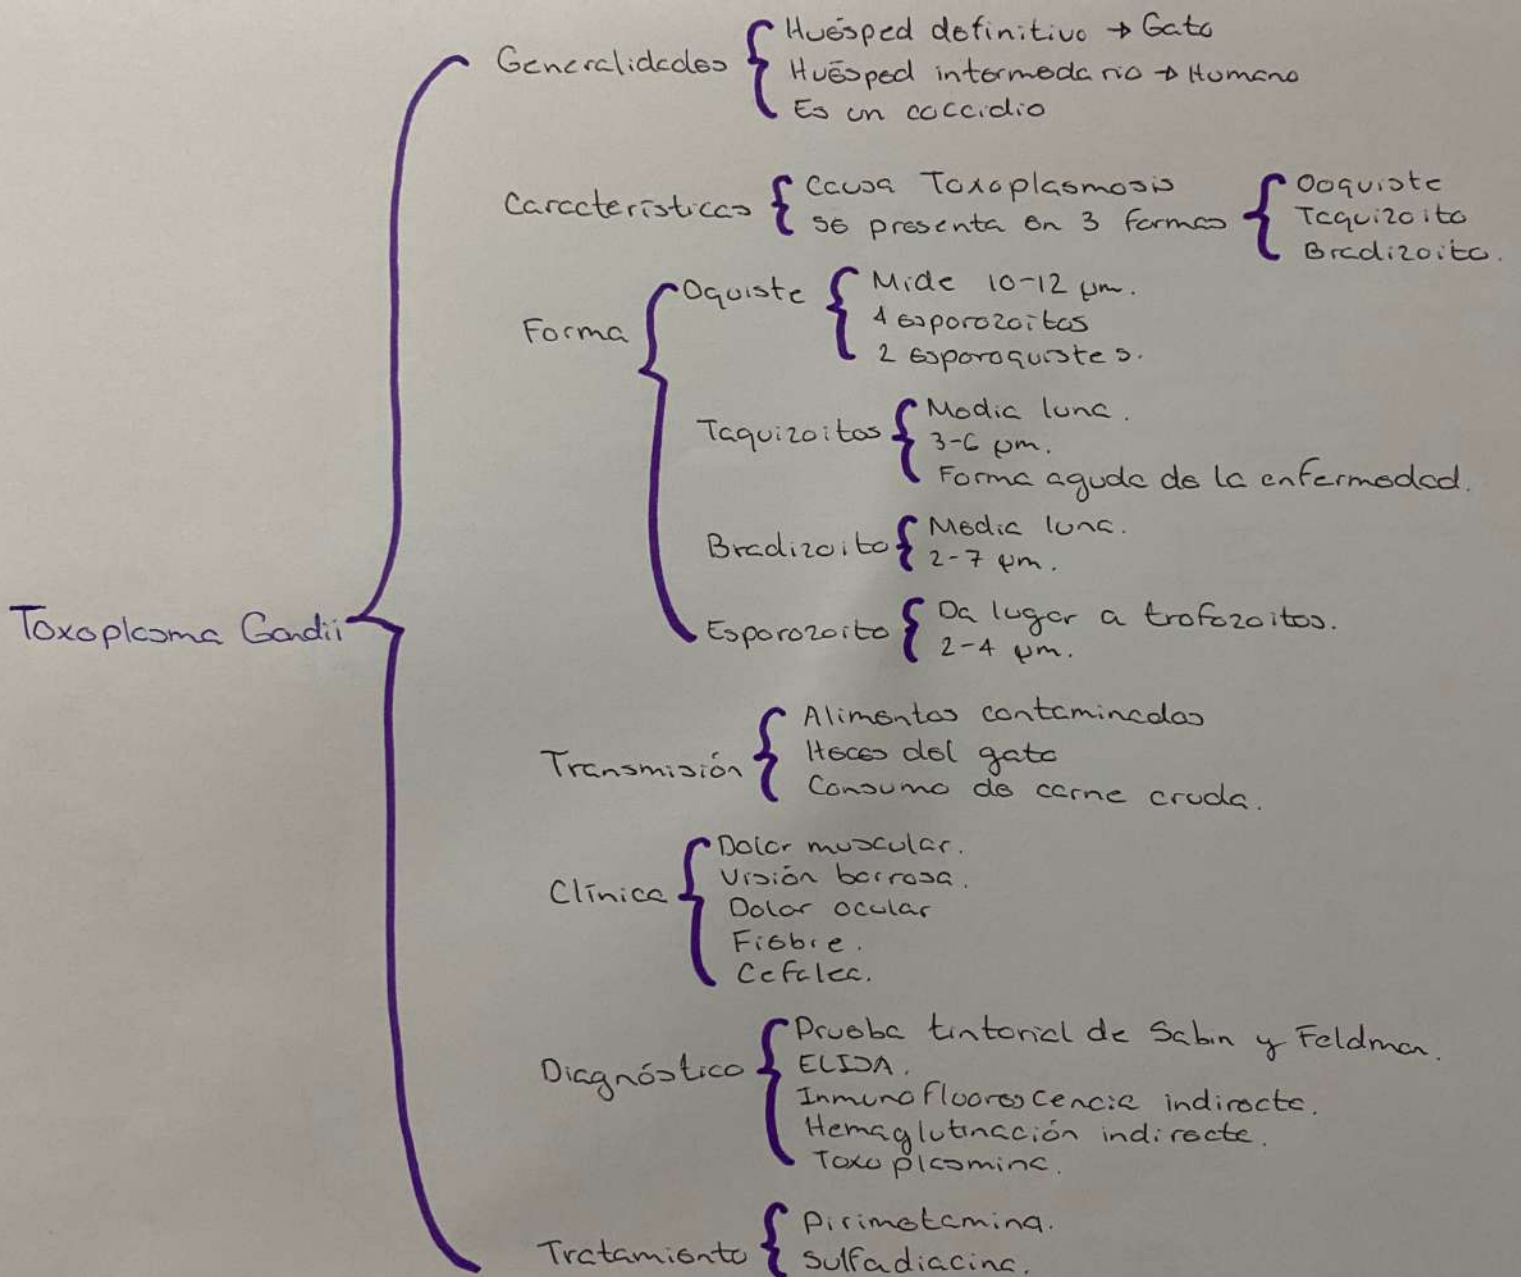 Toxoplasma Gondii
Generalidades
Huésped definitivo → Gato
Huésped intermedario → Humano
Es un coccidio
Características
Causa Toxoplasmosis
se presenta en 3 formas
Ooquiste
Taquizoito
Bradizoito.
Forma
Oquiste
Mide 10-12 µm.
4 esporozoitos
2 esporoquistes.
Taquizoitos
Media luna.
3-6 µm.
Forma aguda de la enfermedad.
Bradizoito
Media luna.
2-7 µm.
Esporozoito
Da lugar a trofozoitos.
2-4 µm.
Transmisión
Alimentos contaminados
Heces del gato
Consumo de carne cruda.
Clínica
Dolor muscular.
Visión borrosa.
Dolor ocular
Fiebre.
Cefalea.
Diagnóstico
Prueba tintorial de Sabin y Feldman.
ELISA.
Inmunofluorescencia indirecta.
Hemaglutinación indirecta.
Toxoplasmina.
Tratamiento
Pirimetamina.
Sulfadiacina.